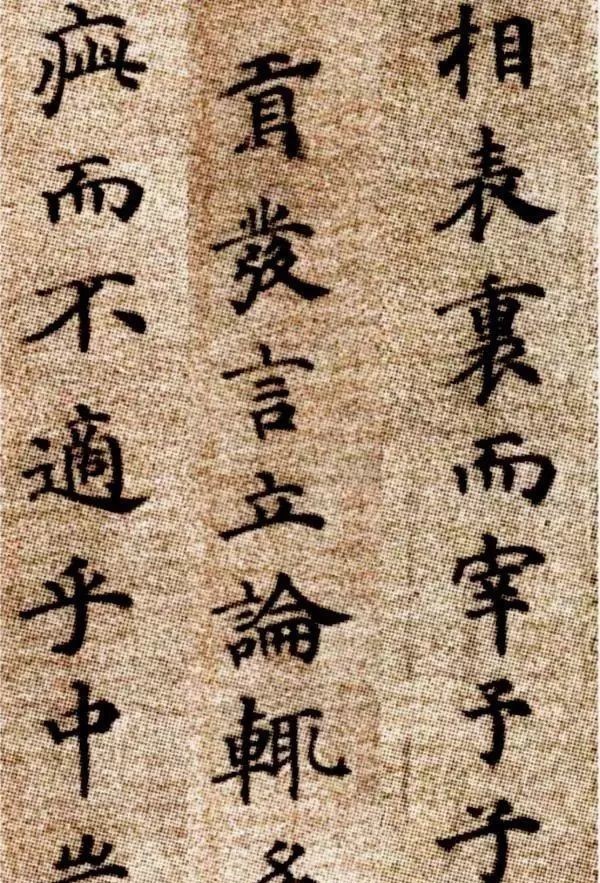 相表裏而宰予子
貢發言立論輒多
疵而不適乎中